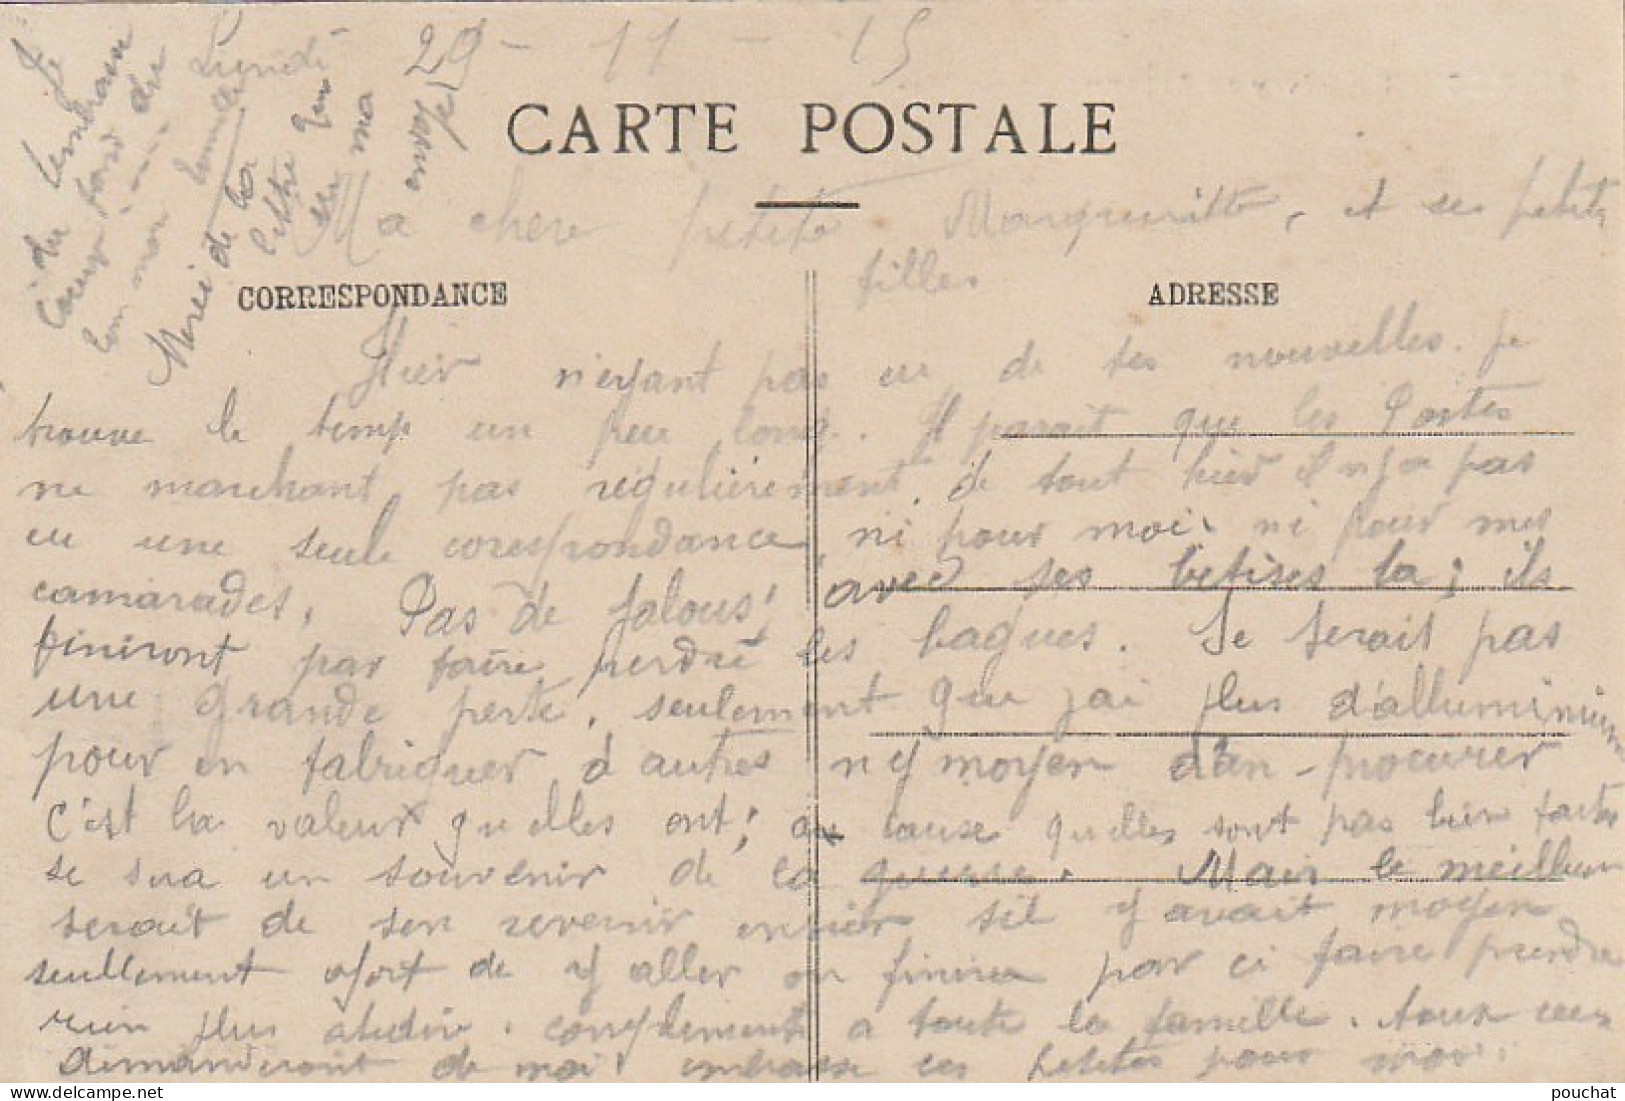 Lundi 29 - 11 - 15
CARTE POSTALE
Ma chere petite Margueritte, et se petites
filles
CORRESPONDANCE
ADRESSE
Hier n'eyant pas eu de tes nouvelles. je
trouve le temp un peu long. Il parait que les Postes
ne marchant pas régulièrement, de tout hier il n y a pas
eu une seule corespondance, ni pour moi ni pour mes
camarades. Pas de jalous; avec ses betises la; ils
finiront par faire perdre les bagues. Se serait pas
une grande perte, seulement que jai plus d'alluminium
pour en fabriquer d'autres n y moyen d'an procurer
c'est la valeur qu elles ont; a cause quelles sont pas bien faites
se sera un souvenir de la guerre. Mair le meilleur
serait de sen revenir entier sil y avait moyen
seullement afort de y aller on finira par ci faire prendre
rien plus compliments a toute la famille. toux ceux
demanderont de moi embrasse ces petites pour moi.
Je
du
coeur
ton
Merci de la
lettre
ma
envoyé